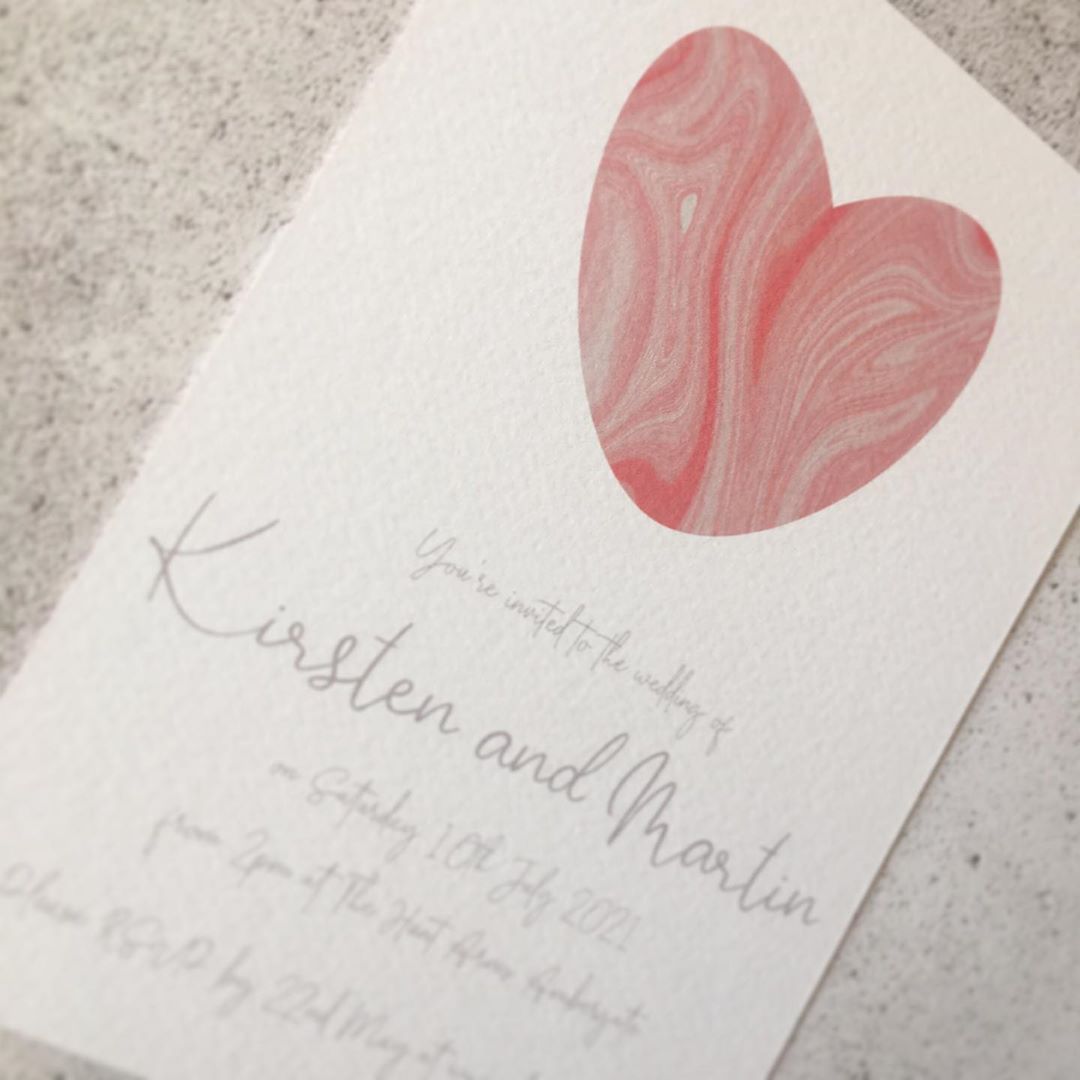 You're invited to the wedding of
Kirsten and Martin
on Saturday 10th July 2021
from 2pm at The Hurt Arms Ambergate
Please RSVP by 22nd May at